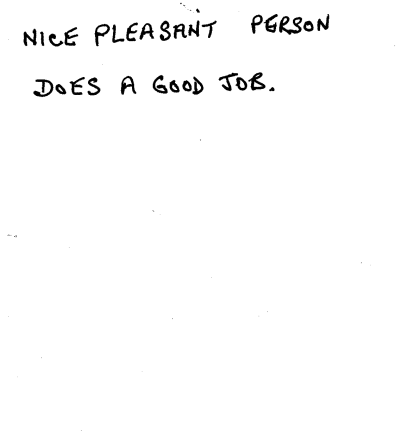 NICE PLEASANT PERSON
DOES A GOOD JOB.